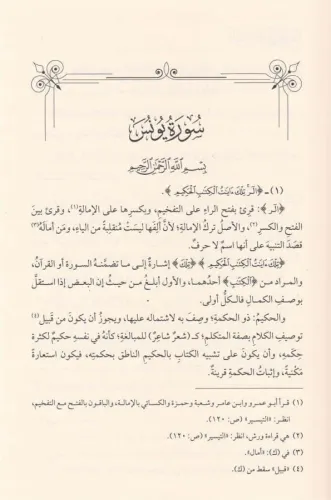 سُورَةُ يُونُسَ
بِسْمِ اللَّهِ الرَّحْمَنِ الرَّحِيمِ
(١) ـ ﴿الٓر تِلْكَ ءَايَٰتُ ٱلْكِتَٰبِ ٱلْحَكِيمِ﴾.
﴿الٓر﴾: قرئ بفتح الراء على التفخيم، وبكسرها على الإمالةِ(١)، وقرئ بين
الفتح والكسر(٢)، والأصلُ تركُ الإمالةِ؛ لأنَّ ألِفَها ليسَتْ منقلِبةً من الياءِ، ومَن أمالَهُ(٣)
قصَدَ التنبيهَ على أنها اسمٌ لا حرفٌ.
﴿تِلْكَ ءَايَٰتُ ٱلْكِتَٰبِ ٱلْحَكِيمِ﴾ ﴿تِلْكَ﴾ إشارةٌ إلى ما تضمَّنتهُ السورة أو القرآن،
والمراد من ﴿ٱلْكِتَٰبِ﴾ أحدُهما، والأول أبلغُ من حيثُ إن البعض إذا استقلَّ
بوصفِ الكمالِ فالكلُّ أَولى.
والحكيمُ: ذو الحكمةِ؛ وصِفَ به لاشتماله عليها، ويجوز أن يكونَ من قَبيل(٤)
توصيفِ الكلام بصفة المتكلم؛ كـ (شعرٌ شاعرٌ) للمبالغةِ؛ كأنهُ في نفسهِ حكيمٌ لكثرةِ
حِكَمِهِ، وأن يكون على تشبيه الكتابِ بالحكيم الناطق بحكمتِه، فيكون استعارةً
مَكْنيةً، وإثباتُ الحكمةِ قرينةً.
(١) قرأ أبو عمرو وابن عامر وشعبة وحمزة والكسائي بالإمالة، والباقون بالفتح مع التفخيم،
انظر: «التيسير» (ص: ١٢٠).
(٢) هي قراءة ورش، انظر: «التيسير» (ص: ١٢٠).
(٣) في (ك): «أمال».
(٤) «قبيل» سقط من (ك).